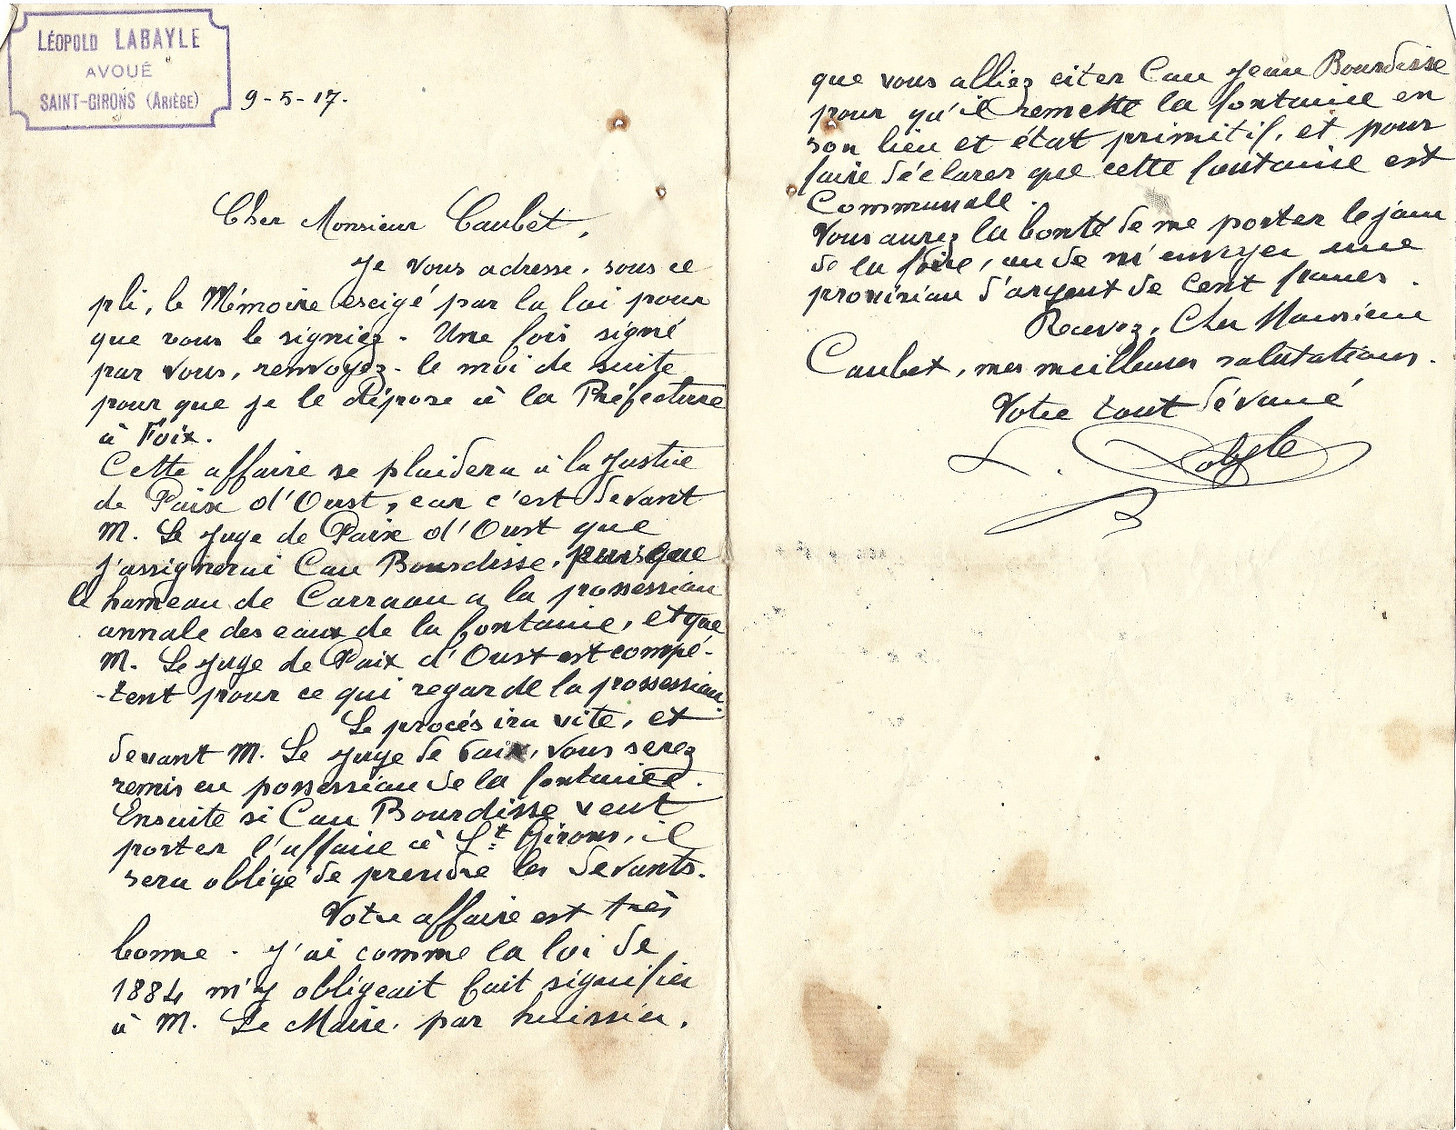 LÉOPOLD LABAYLE
AVOUÉ
SAINT-GIRONS (ARIÈGE)
9-5-17.
Cher Monsieur Caubet,
Je vous adresse, sous ce
pli, le Mémoire escigé par la loi pour
que vous le signiez. Une fois signé
par vous, renvoyez-le moi de suite
pour que je le dépose à la Préfecture
à Foix.
Cette affaire se plaidera à la Justice
de Paix d'Oust, car c'est devant
M. Le Juge de Paix d'Oust que
j'assignerai Cau Bourdisse, puisque
le hameau de Carraou a la possession
annale des eaux de la fontaine, et que
M. Le Juge de Paix d'Oust est compé-
-tent pour ce qui regarde la possession.
Le procés ira vite, et
devant M. Le Juge de Paix, vous serez
remis en possession de la fontaine.
Ensuite si Cau Bourdisse veut
porter l'affaire à St Girons, il
sera obligé de prendre les devants.
Votre affaire est très
bonne. J'ai comme la loi de
1884 m'y obligeait fait signifier
à M. Le Maire, par huissier,
que vous alliez citer Cau Jean Bourdisse
pour qu'il remette la fontaine en
son lieu et état primitif, et pour
faire déclarer que cette fontaine est
Communale.
Vous aurez la bonté de me porter le jour
de la foire, ou de m'envoyer une
provision d'argent de cent francs.
Recevez, Cher Monsieur
Caubet, mes meilleures salutations.
Votre tout dévoué
L. Labayle